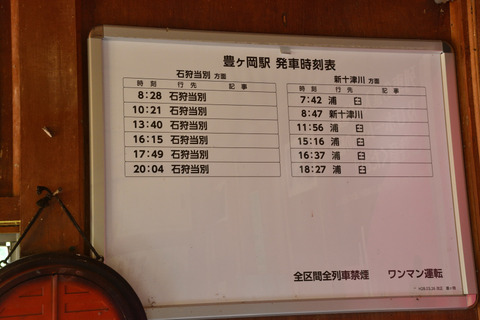 豊ヶ岡駅 発車時刻表
石狩当別 方面
時刻 行先 記事
8:28 石狩当別
10:21 石狩当別
13:40 石狩当別
16:15 石狩当別
17:49 石狩当別
20:04 石狩当別
新十津川 方面
時刻 行先 記事
7:42 浦臼
8:47 新十津川
11:56 浦臼
15:16 浦臼
16:37 浦臼
18:27 浦臼
全区間全列車禁煙 ワンマン運転